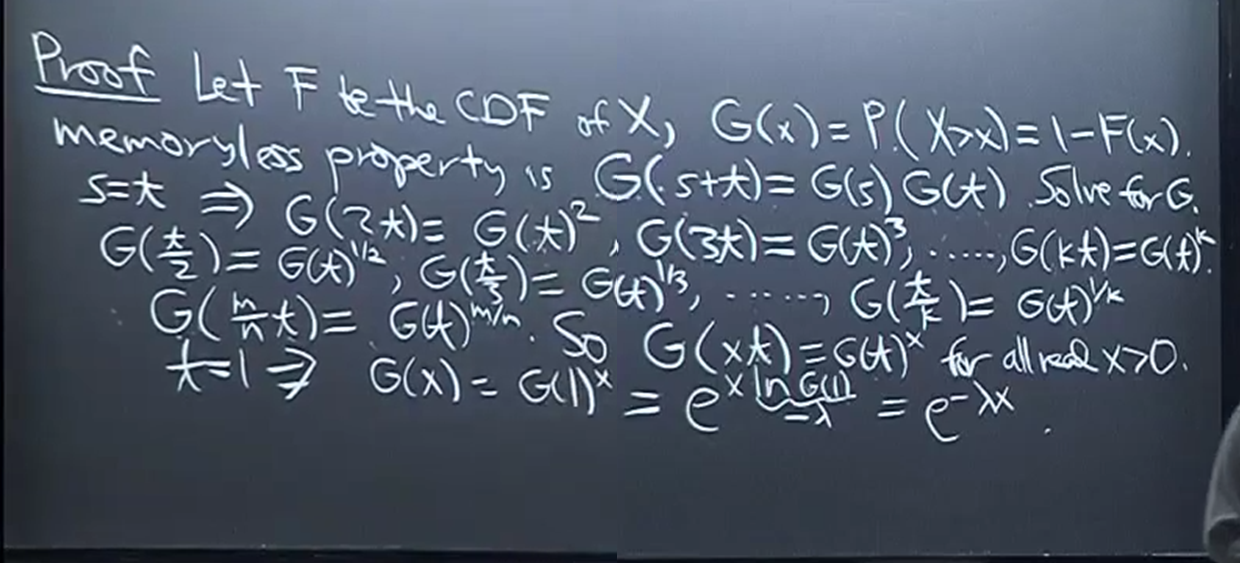 Proof Let F be the CDF of X, G(x) = P(X>x) = 1-F(x).
memoryless property is G(s+t) = G(s) G(t). Solve for G.
s=t ⇒ G(2t) = G(t)², G(3t) = G(t)³, ....., G(kt) = G(t)ᵏ.
G(t/2) = G(t)^1/2, G(t/3) = G(t)^1/3, ....., G(t/k) = G(t)^1/k
G(m/n t) = G(t)^m/n. So G(xt) = G(t)^x for all real x>0.
t=1 ⇒ G(x) = G(1)^x = e^x ln G(1) = e^-λx.
= -λ